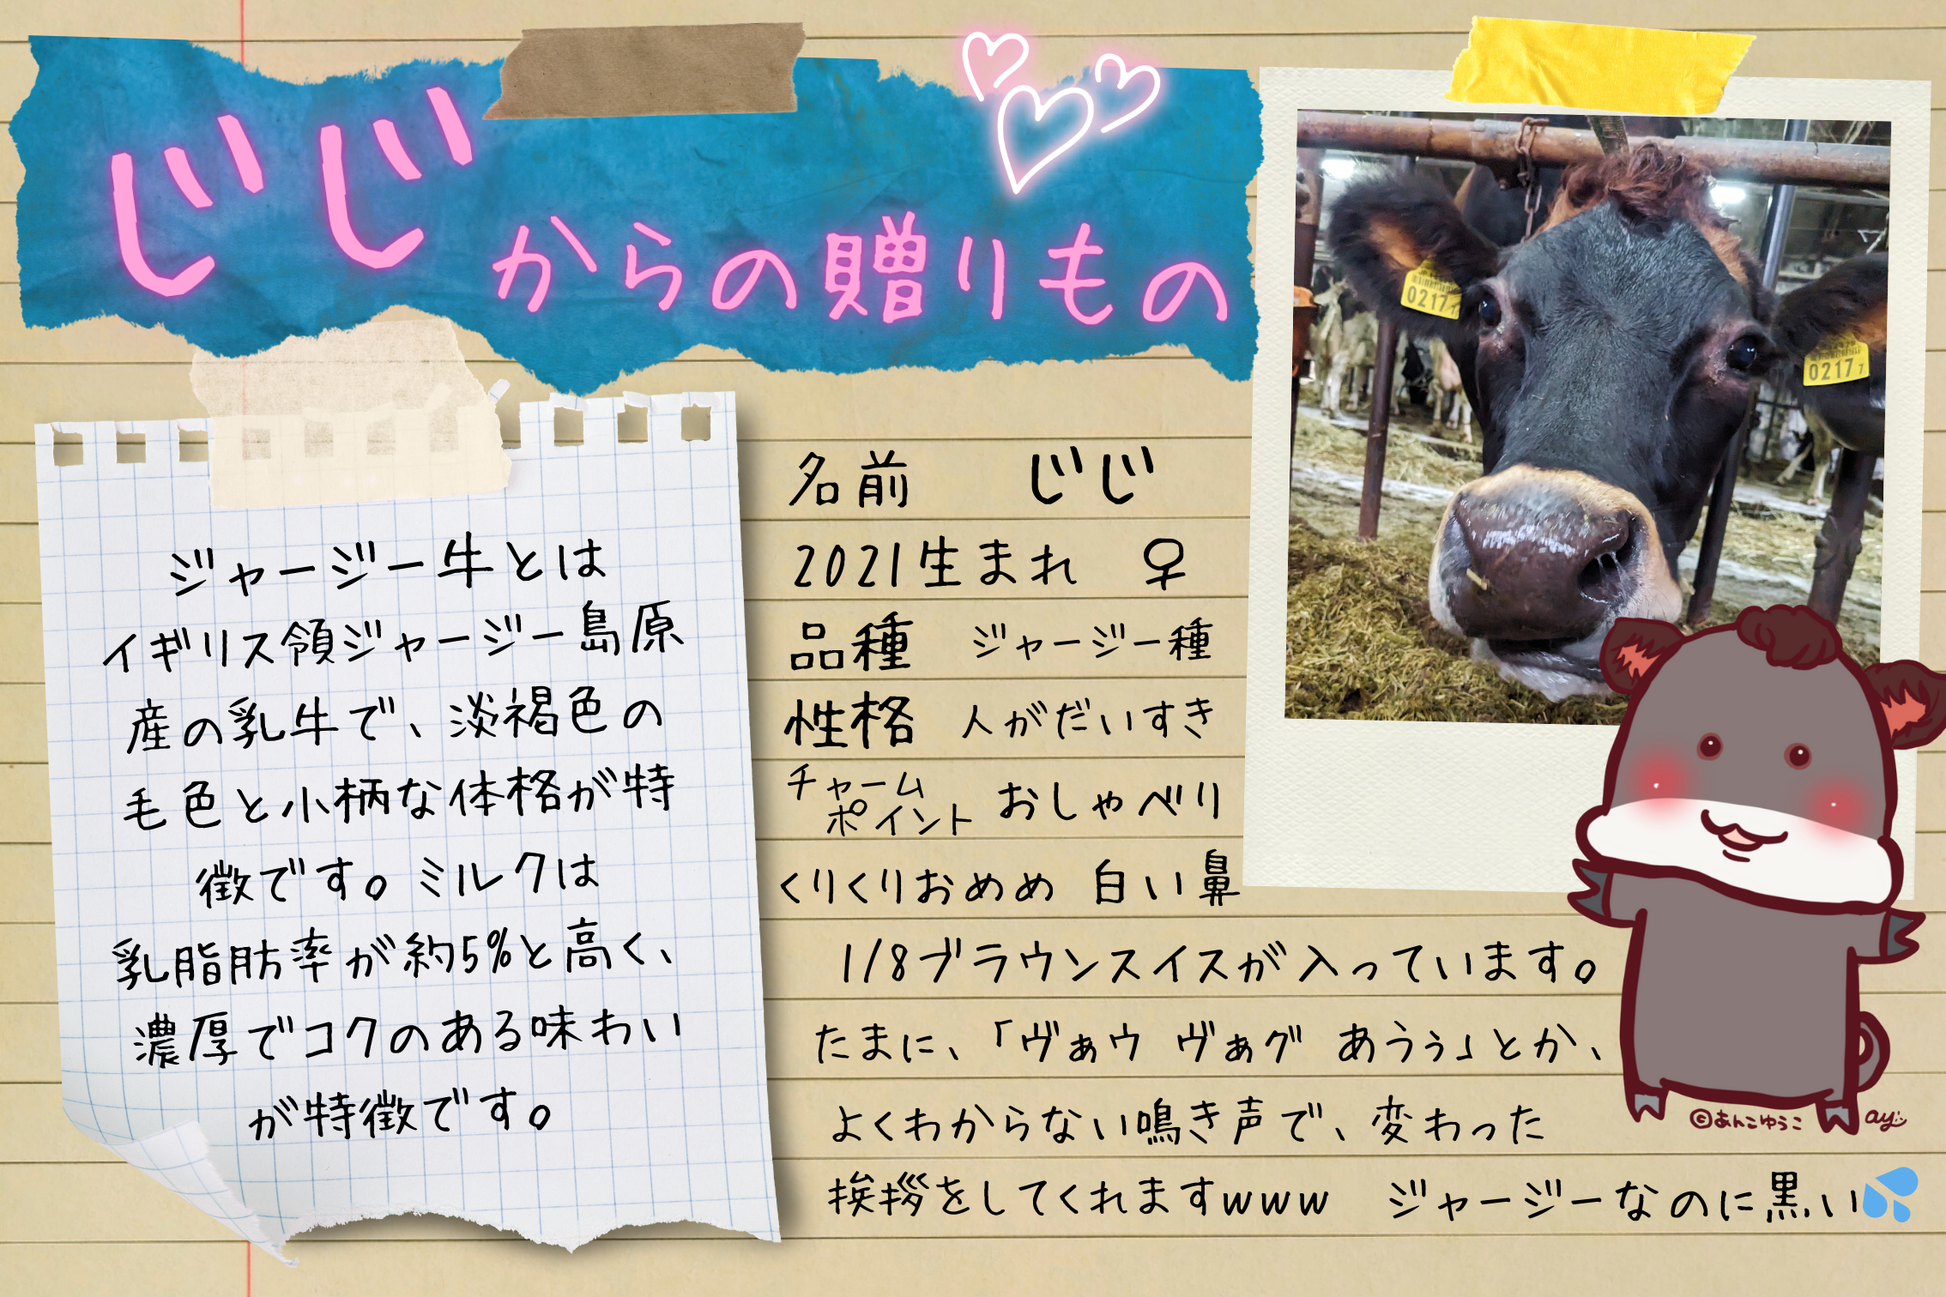 じじからの贈りもの
0217
7
0217
7
ジャージー牛とは
イギリス領ジャージー島原
産の乳牛で、淡褐色の
毛色と小柄な体格が特
徴です。ミルクは
乳脂肪率が約5%と高く、
濃厚でコクのある味わい
が特徴です。
名前 じじ
2021生まれ ♀
品種 ジャージー種
性格 人がだいすき
チャームポイント おしゃべり
くりくりおめめ 白い鼻
1/8ブラウンスイスが入っています。
たまに、「ヴぁウ ヴぁグ あうぅ」とか、
よくわからない鳴き声で、変わった
挨拶をしてくれますwww ジャージーなのに黒い💦
©あんこゆうこ ay